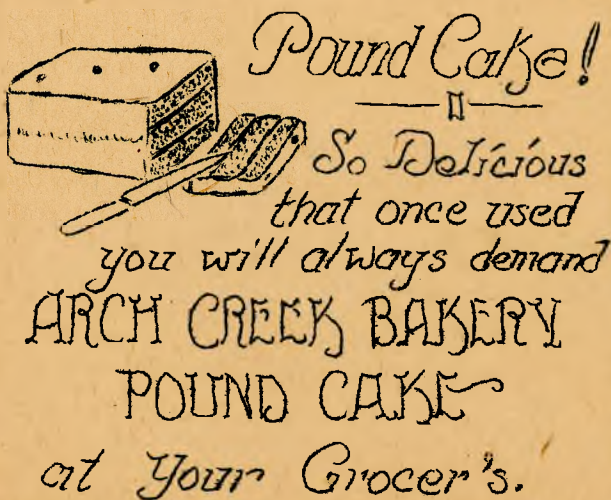 Pound Cake!
So Delicious
that once used
you will always demand
ARCH CREEK BAKERY
POUND CAKE
at Your Grocer's.